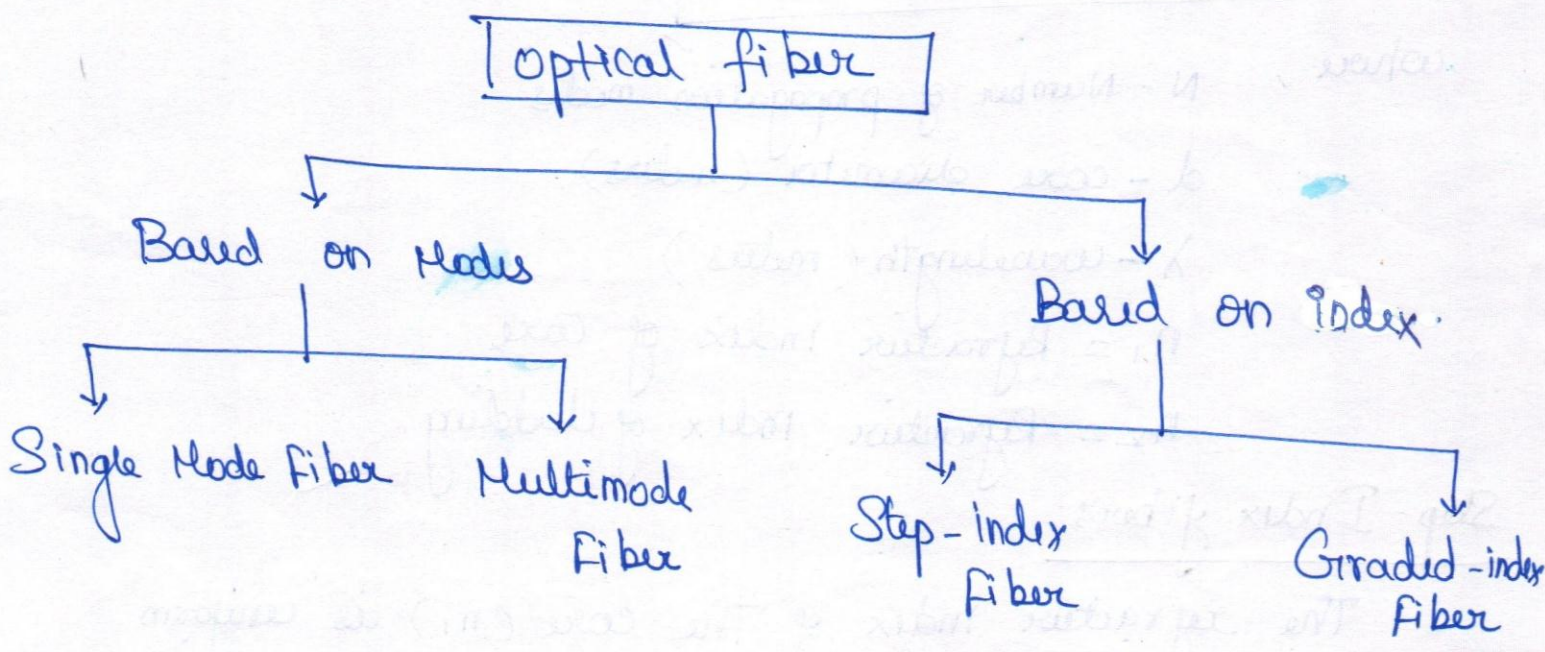 Optical fiber
Based on Modes
Based on index.
Single Mode Fiber
Multimode
Fiber
Step-index
Fiber
Graded-index
Fiber